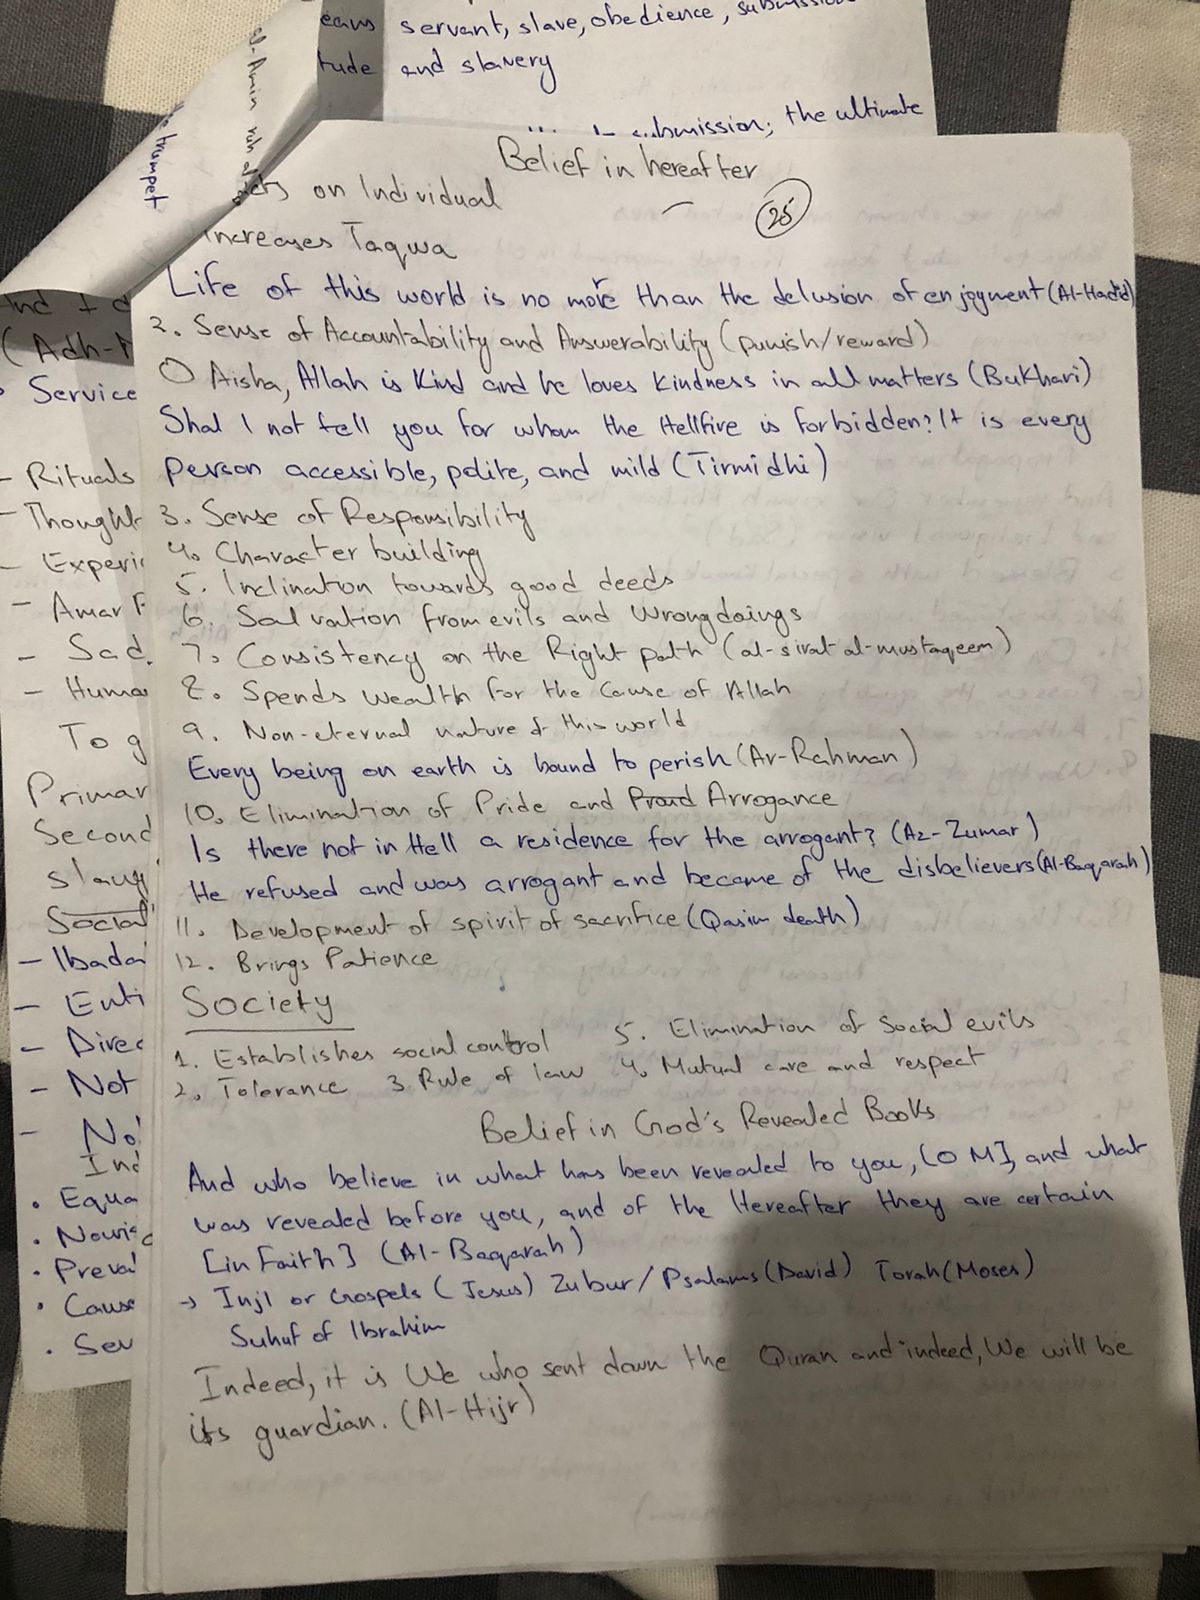 servant, slave, obedience, submission
and slavery
submission; the ultimate
el-Amin
trumpet
Belief in hereafter
25
on Individual
Increases Taqwa
Life of this world is no more than the delusion of enjoyment (Al-Hadid)
2. Sense of Accountability and Answerability (punish/reward)
O Aisha, Allah is Kind and he loves kindness in all matters (Bukhari)
Shal I not tell you for whom the Hellfire is forbidden? It is every
person accessible, polite, and mild (Tirmidhi)
3. Sense of Responsibility
4. Character building
5. Inclination towards good deeds
6. Salvation from evils and Wrongdoings
7. Consistency on the Right path (al-sirat al-mustaqeem)
8. Spends wealth for the Cause of Allah
9. Non-eternal nature of this world
Every being on earth is bound to perish (Ar-Rahman)
10. Elimination of Pride and Proud Arrogance
Is there not in Hell a residence for the arrogant? (Az-Zumar)
He refused and was arrogant and became of the disbelievers (Al-Baqarah)
11. Development of spirit of sacrifice (Qasim death)
12. Brings Patience
Society
1. Establishes social control
2. Tolerance 3 Rule of law 4. Mutual care and respect
5. Elimination of Social evils
Belief in God's Revealed Books
And who believe in what has been revealed to you, [O M], and what
was revealed before you, and of the Hereafter they are certain
[in Faith] (Al-Baqarah)
→ Injl or Gospels (Jesus) Zubur/Psalams (David) Torah (Moses)
Suhuf of Ibrahim
Indeed, it is We who sent down the Quran and indeed, We will be
its guardian. (Al-Hijr)
Service
- Rituals
- Thought
- Experi
- Amar
- Sad
- Huma
To g
Primar
Second
slav
Social
- Ibada
- Enti
- Direc
- Not
- No
Ind
• Equa
• Nouris
• Preva
• Cause
• Sev